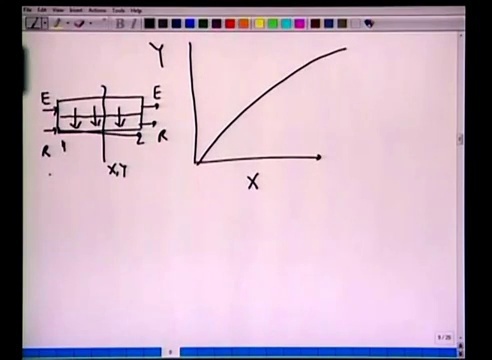 File Edit View Insert Actions Tools Help
B
Y
E E
R R
1 2
X,Y
X